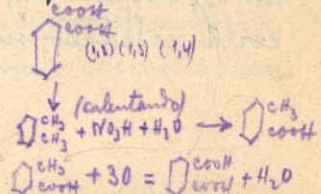 COOH
COOH
(1,2) (1,3) (1,4)
(calentando)
CH₃ CH₃ + NO₃H + H₂O → CH₃ COOH
CH₃ COOH + 3O = COOH COOH + H₂O